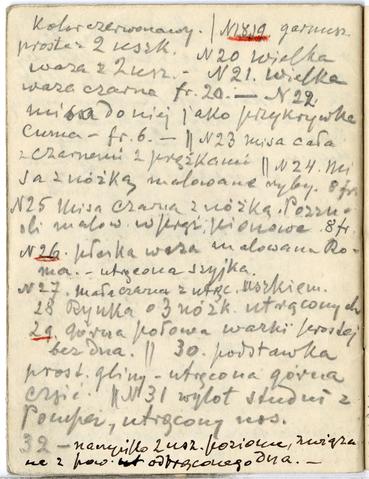 Kolor czerwonawy. | N1819 garnusz.
proste z 2 uszk. N20 wielka
waza z 2 usz. - N21. wielka
waza czarna fr. 20. — N22.
misa do niej jako przykrywka
Cuma - fr. 6. — || N23 misa cała
z czarnemi z prążkami || N24. mi
sa z nóżką, malowane ryby. 8 fr.
N25 misa czarna z nóżką. Pozzu-
oli malow. w pręż. pionowe. 8 fr.
N26. płaska waza malowana Ro-
ma. - utrącona szyjka.
N27. mała czarna z utrąc. uszkiem.
28 Rynka o 3 nóżk. utrąconych
29. górna połowa wazki prostej
bez dna. || 30. podstawka
prost. gliny - utrącona górna
część. || N31 wylot studni z
Pompei, utrącony nos.
32 - naczyńko 2 usz. poziome, związa-
ne z pow. odtrąconego dna. —